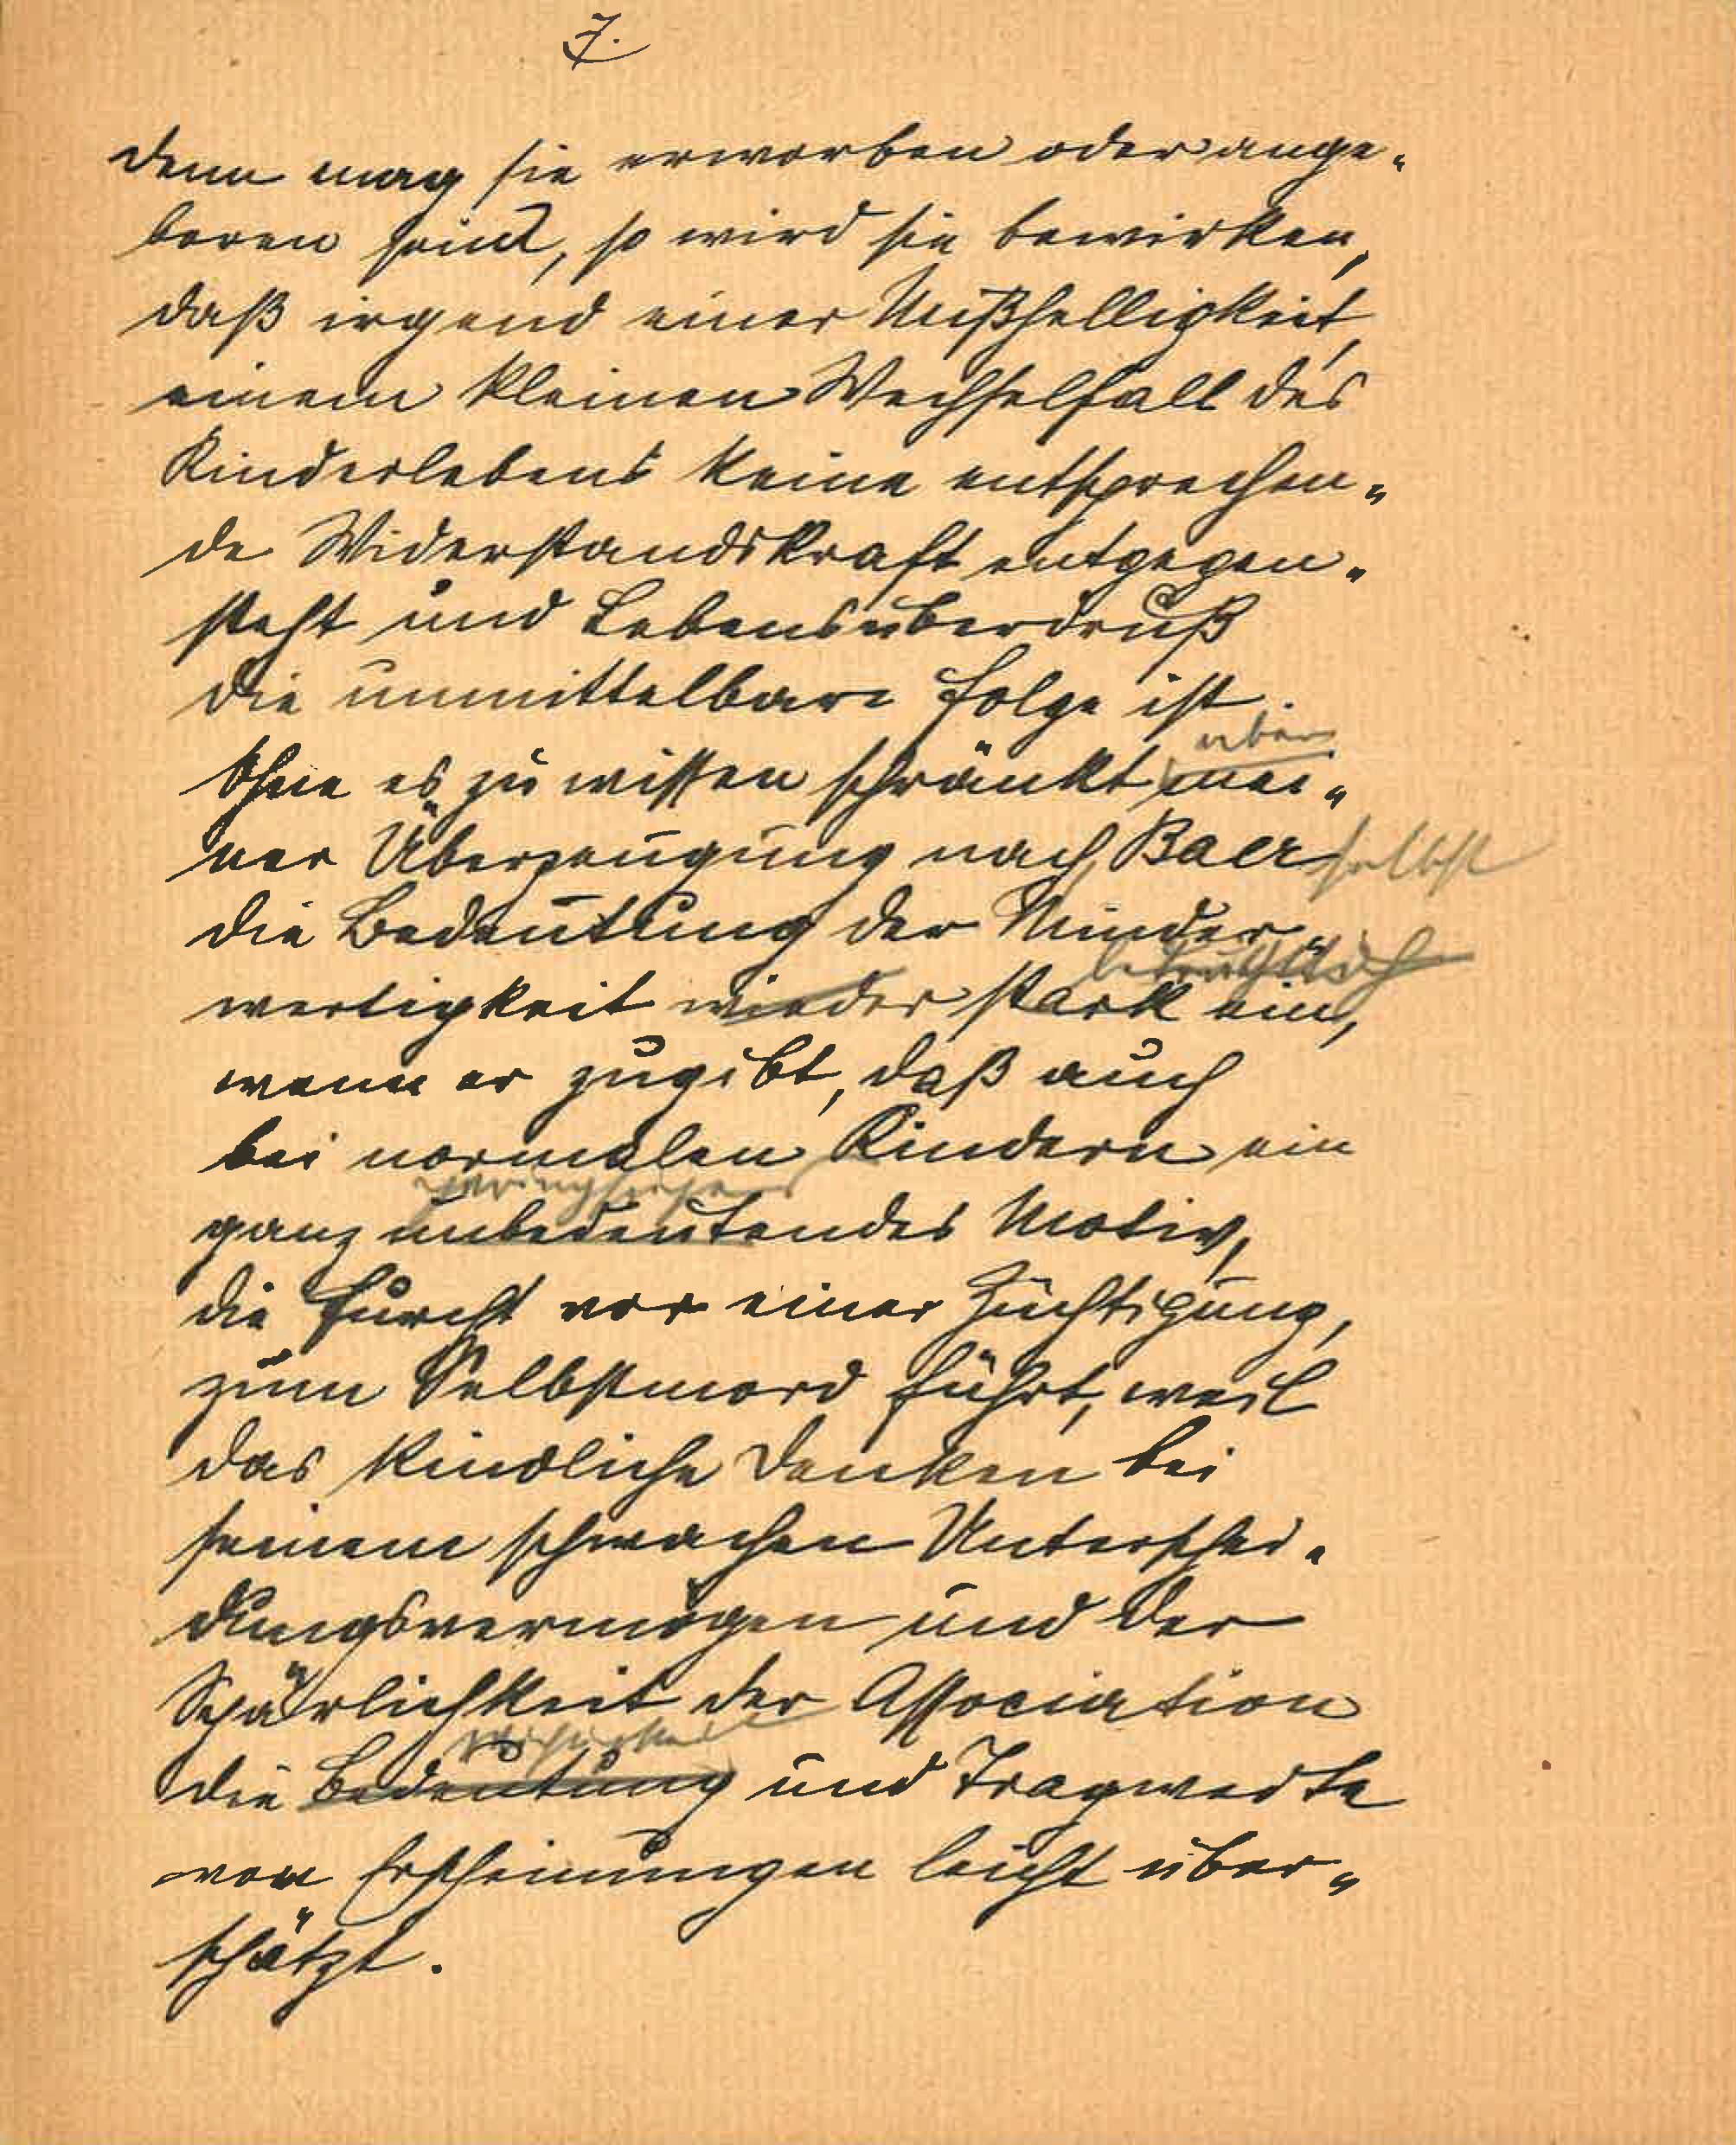 7.
denn mag sie erworben oder ange-
boren sein, so wird sie bewirken,
daß irgend einer Mißhelligkeit,
einem kleinen Wechselfall des
Kinderlebens keine entsprechen-
de Widerstandskraft entgegen-
steht und Lebensüberdruß
die unmittelbare Folge ist.
aber
Ohne es zu wissen schränkt mei-
ner Überzeugung nach Baer selbst
die Bedeutung der Minder-
beträchtlich
wertigkeit wieder stark ein,
wenn er zugibt, daß auch
bei normalen Kindern ein
geringfügiges
ganz unbedeutendes Motiv,
die Furcht vor einer Züchtigung,
zum Selbstmord führt, weil
das kindliche Denken bei
seinem schwachen Unterschei-
dungsvermögen und der
Spärlichkeit der Association
Wichtigkeit
die Bedeutung und Tragweite
von Erscheinungen leicht über-
schätzt.